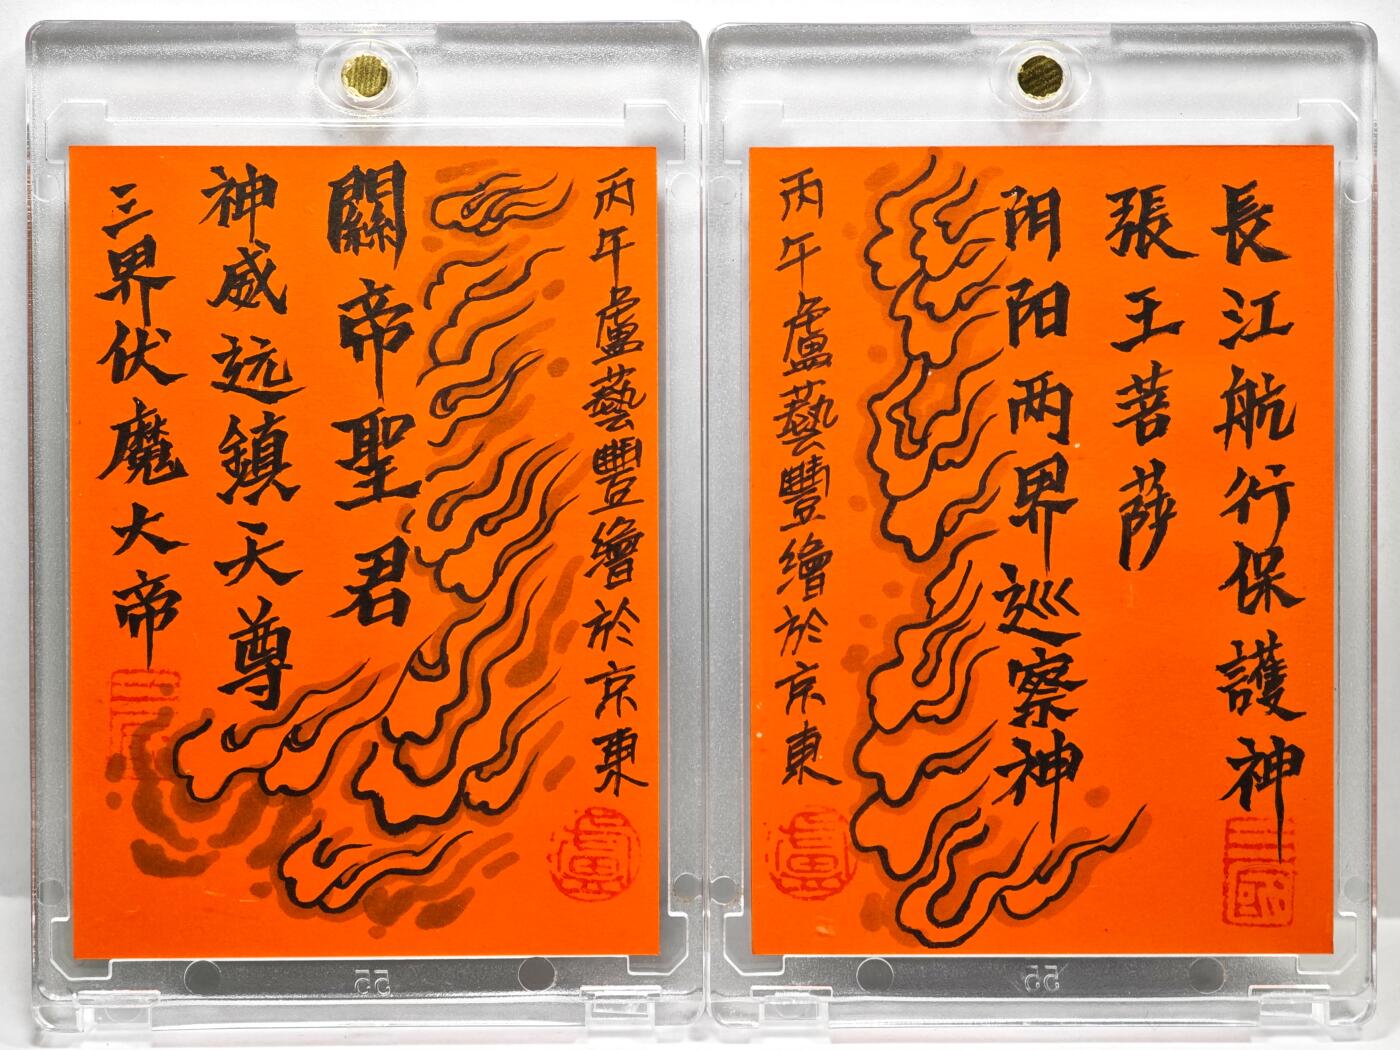 丙午盧藝豐繪於京東
盧
關帝聖君
神威远鎮天尊
三界伏魔大帝
55
長江航行保護神
三國
張王菩薩
阴阳两界巡察神
丙午盧藝豐繪於京東
盧
55